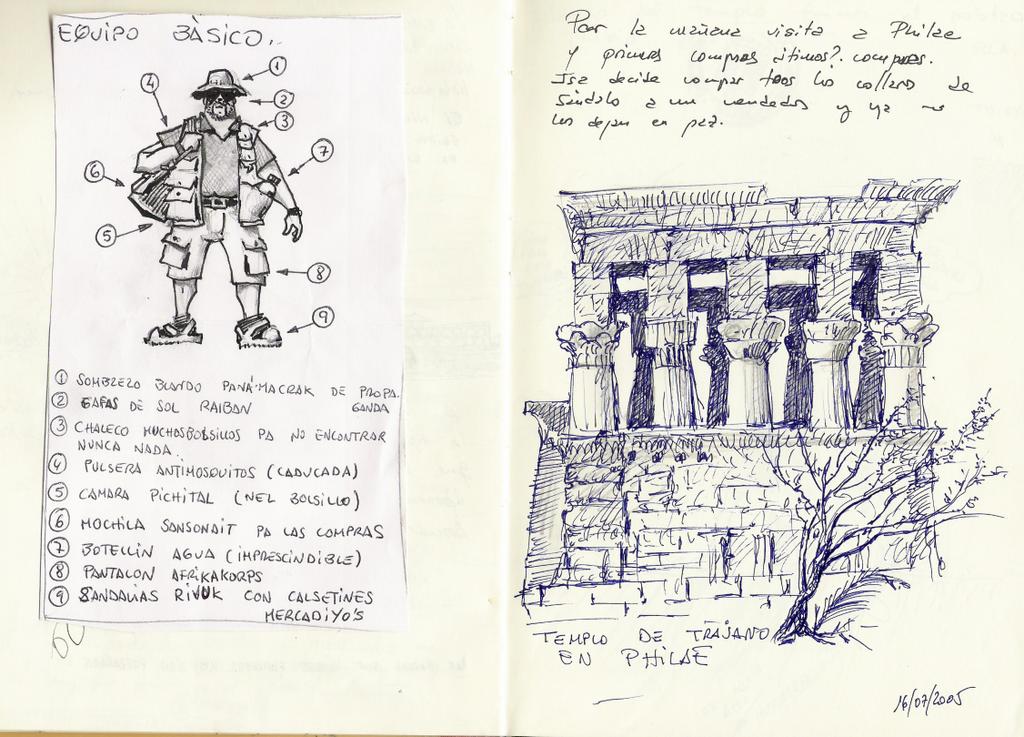 EQUIPO BÀSICO..
1
2
3
4
5
6
7
8
9
① SOMBRERO BLANDO PANÁ-MACRAK DE PROPA
GANDA
② GAFAS DE SOL RAIBAN
③ CHALECO MUCHOSBOLSILLOS PA NO ENCONTRAR
NUNCA NADA.
④ PULSERA ANTIMOSQUITOS (CADUCADA)
⑤ CAMARA PICHITAL (NEL BOLSILLO)
⑥ MOCHILA SANSONAIT PA LAS COMPRAS
⑦ BOTELLIN AGUA (IMPRESCINDIBLE)
⑧ PANTALON AFRIKAKORPS
⑨ SANDALIAS RIVUK CON CALSETINES
MERCADIYO'S
Por la mañana visita a Philae
y primeras compras compras.
Isa decide compar toos los collares de
Sándalo a un vendedor y ya no
los dejan en paz.
TEMPLO DE TRAJANO
EN PHILAE
16/07/2005